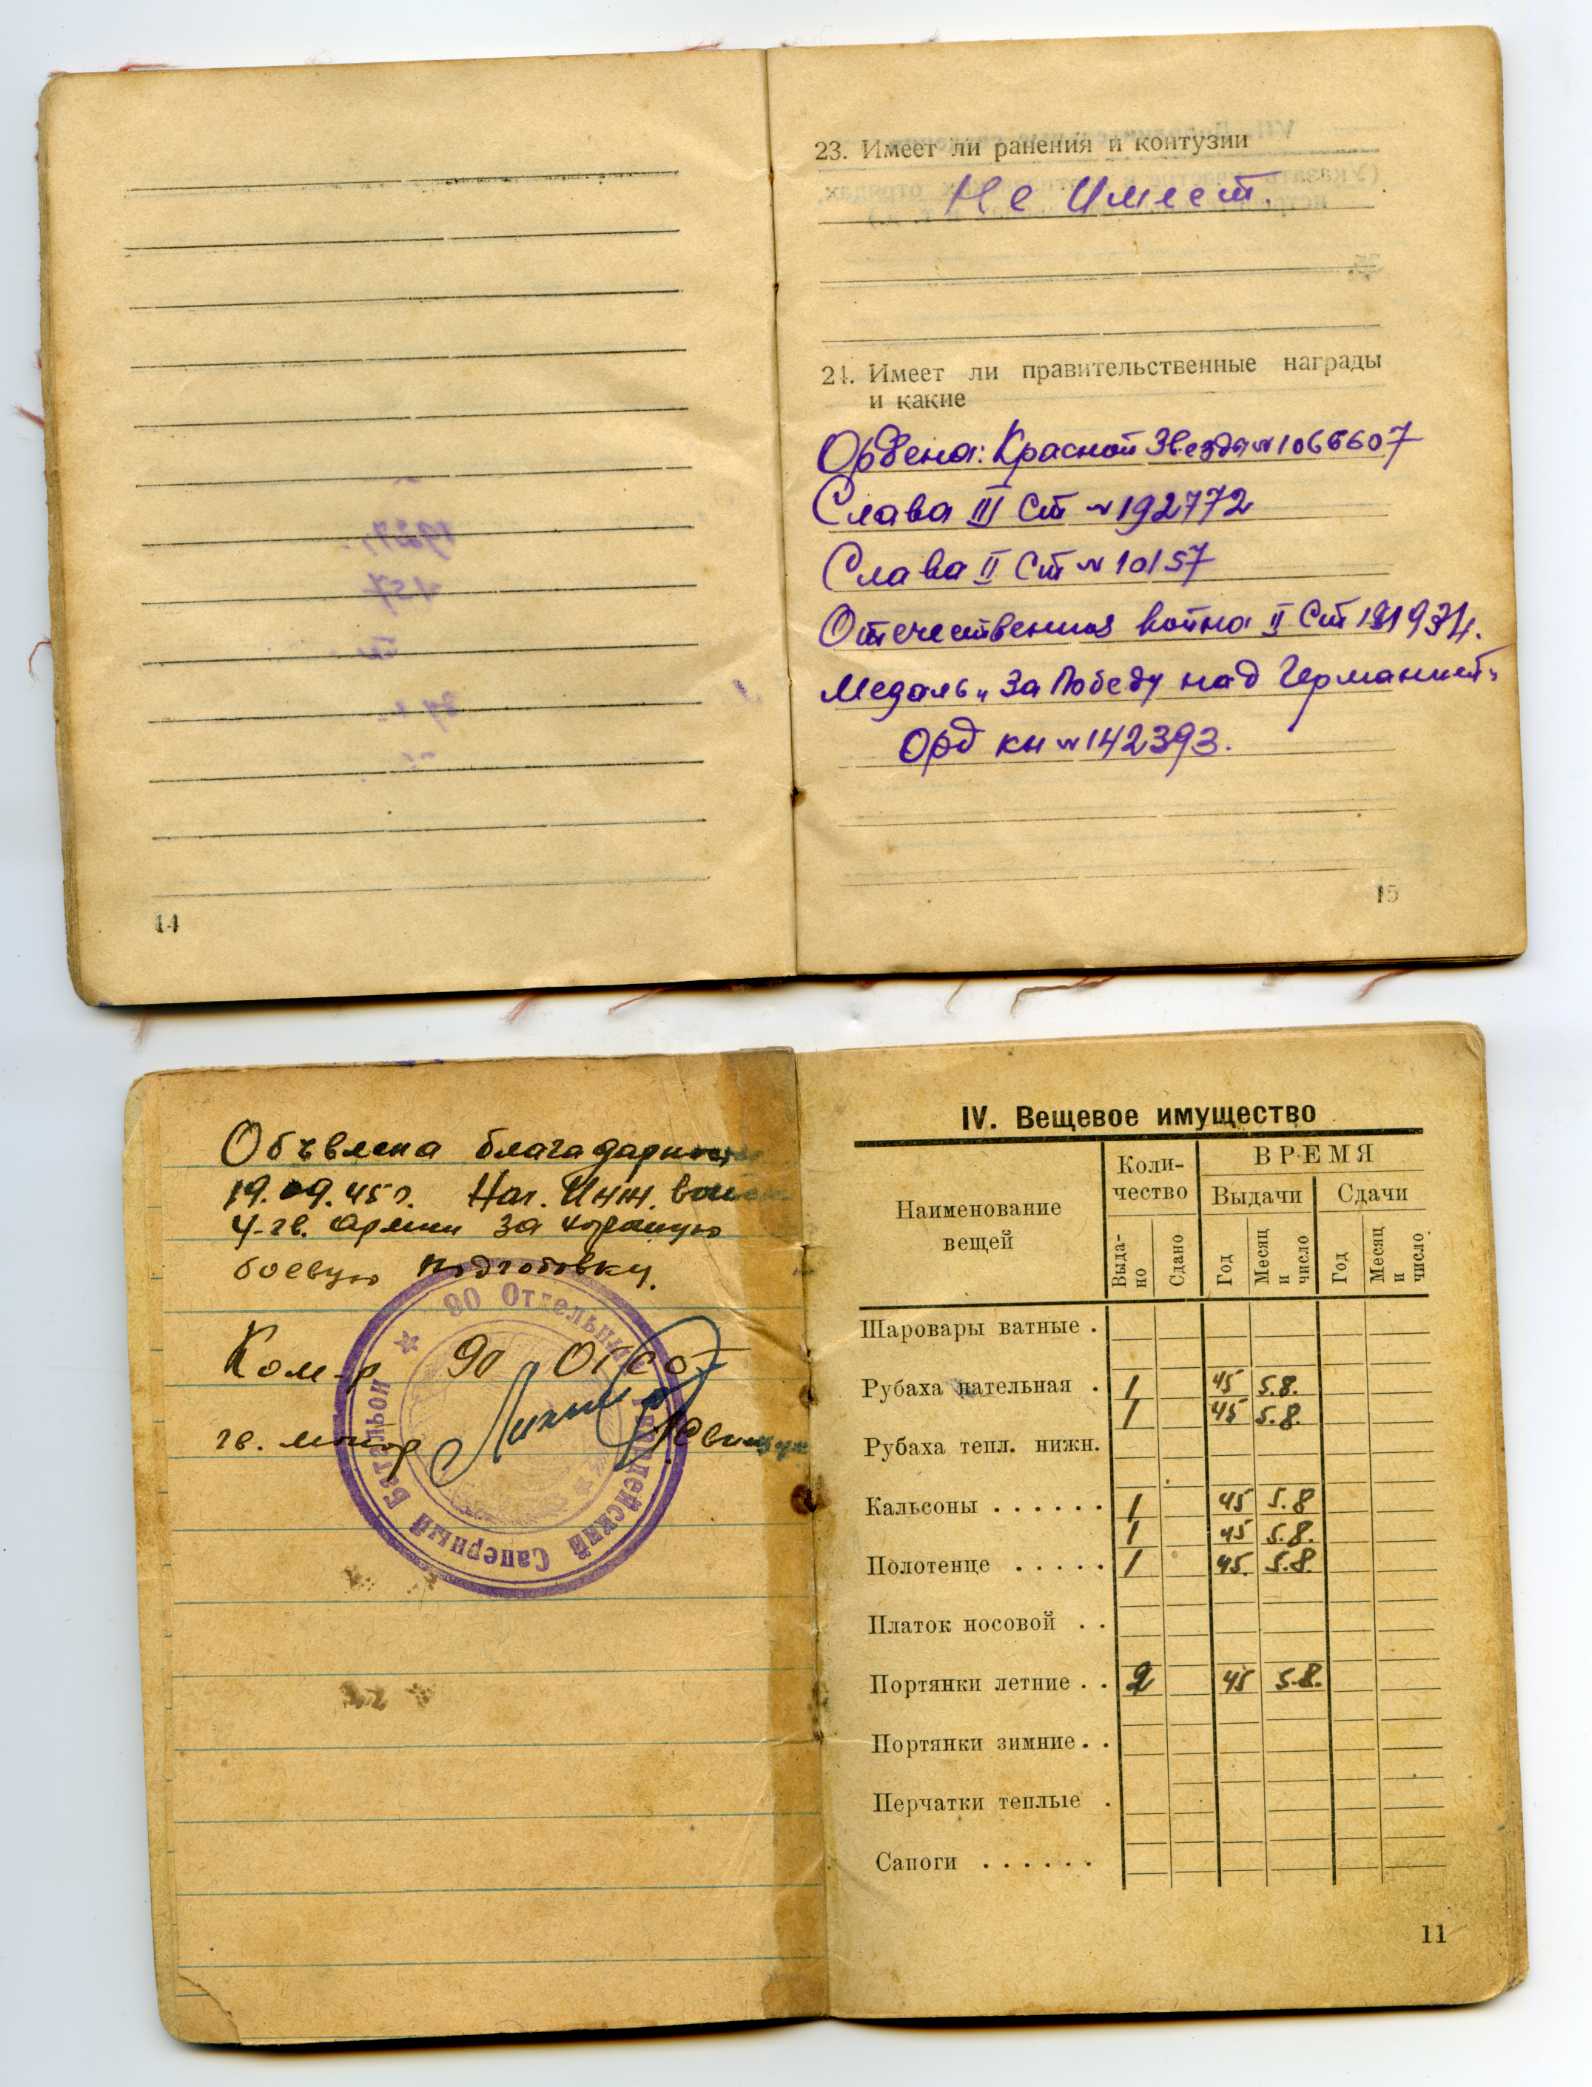 23. Имеет ли ранения и контузии
Не имеет.
24. Имеет ли правительственные награды
и какие
Ордена: Красной Звезды № 1066607
Слава III Ст № 192772
Слава II Ст № 10157
Отечественная война II Ст
Медаль „За Победу над Германией“
Орд кн № 142393.
14
15
Объвлена благадарность
19.09.45 г. Нач. Инж. войск
4-гв. армии за хорошую
боевую подготовку.
Ком-р 90 ОГСБ
гв. майор
90 Отдельный Гвардейский Саперный Батальон
IV. Вещевое имущество
Наименование вещей
Коли-чество
ВРЕМЯ
Выдачи
Сдачи
Выда-но
Сдано
Год
Месяц и число
Год
Месяц и число
Шаровары ватные .
Рубаха нательная . 1 45 5.8.
1 45 5.8.
Рубаха тепл. нижн.
Кальсоны . . . . . . 1 45 5.8
1 45 5.8.
Полотенце . . . . . 1 45. 5.8.
Платок носовой . .
Портянки летние . . 2 45 5.8.
Портянки зимние . .
Перчатки теплые .
Сапоги . . . . . .
11